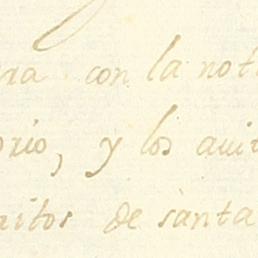 ra con la not
orio, y los auit
uitos de santa